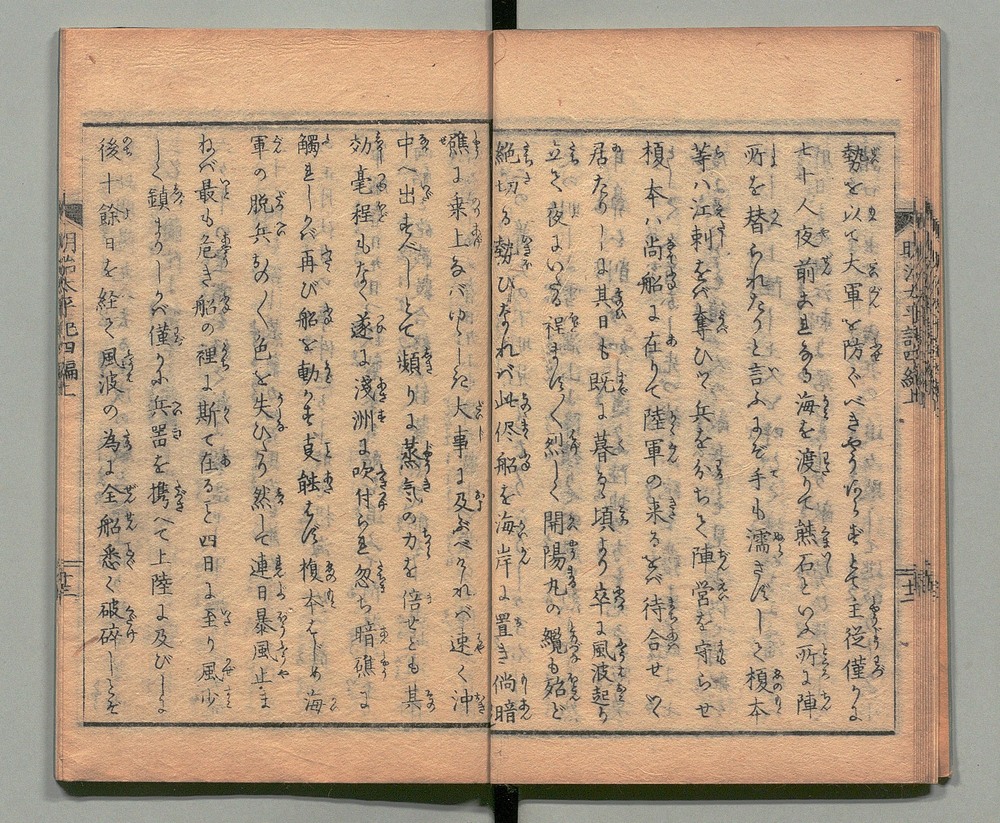 勢を以て大軍を防ぐべきやうあらずとて主従僅かに
七十人夜前まゐる海を渡りて熊石といふ所に陣
所を替られたりと言ふまだ手も濡さずして榎本
等ハ江刺をバ奪ひて兵をわかちて陣営を守らせ
榎本ハ尚船に在りて陸軍の来るをバ待合せつゝ
居たりしに其日も既に暮る頃より卒に風波起り
立て夜にいる程ますます烈しく開陽丸の纜も殆ど
絶切る勢ひなれバ此侭船を海岸に置き倘暗
礁に乗上なバゆゝしき大事に及ぶべけれバ速く沖
中へ出すべしとて頻りに蒸気の力を倍せども其
効毫程もなく遂に浅洲に吹付られ忽ち暗礁に
觸れしかバ再び船を動かす㕝能はず榎本はじめ海
軍の脱兵ものゝく色を失ひたり然して連日暴風止ま
ねバ最も危き船の裡に斯て在ること四日に至り風少
しく鎮まりしかバ僅かに兵器を携へて上陸に及びしに
後十餘日を経て風波の為に全船悉く破碎しとぞ
明治太平記四編上
十二